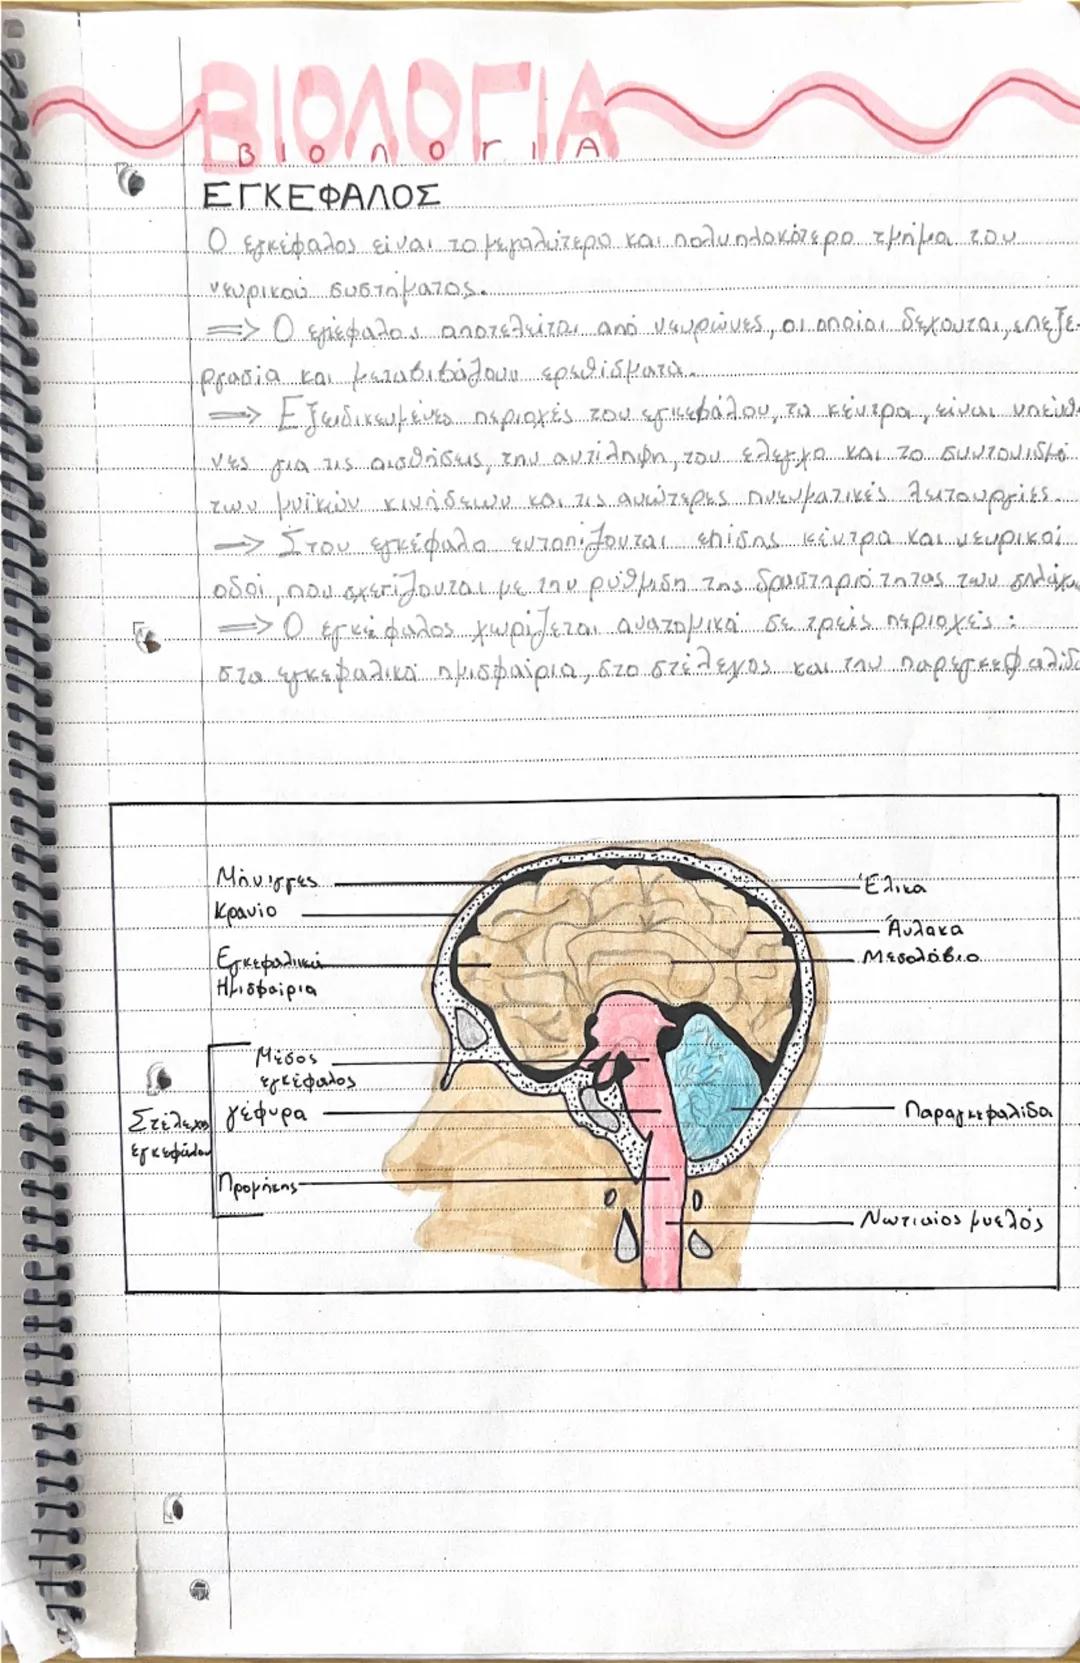 ΒΙΟΛΟΓΙΑ
ΒΙΟΛΟΓΙΑ
ΕΓΚΕΦΑΛΟΣ
Ο εγκέφαλος είναι το μεγαλύτερο και πολυπλοκότερο τμήμα του
νευρικού συστήματος.
=> Ο εγκέφαλος αποτελείται από νευρώνες, οι οποίοι δέχονται, επεξε-
ργασία και μεταβιβάζουν ερεθίσματα.
=> Εξειδικευμένες περιοχές του εγκεφάλου, τα κέντρα, είναι υπεύθ
νες για τις αισθήσεις, την αντίληψη, τον έλεγχο και το συντονισμό
των μυϊκών κινήσεων και τις ανώτερες πνευματικές λειτουργίες.
=> Στον εγκέφαλο εντοπίζονται επίσης κέντρα και νευρικοί
οδοί, που σχετίζονται με την ρύθμιση της δραστηριότητας των σπλάχν
=> Ο εγκέφαλος χωρίζεται ανατομικά σε τρείς περιοχές:
στα εγκεφαλικά ημισφαίρια, στο στέλεχος και την παρεγκεφαλίδα
Μήνιγγες
Κρανίο
Εγκεφαλικά
Ημισφαίρια
Μέσος
εγκέφαλος
γέφυρα
Στέλεχος
εγκεφάλου
Προμήκης
Έλικα
Άυλακα
Μεσολόβιο
Παραγκεφαλίδα
Νωτιαίος μυελός